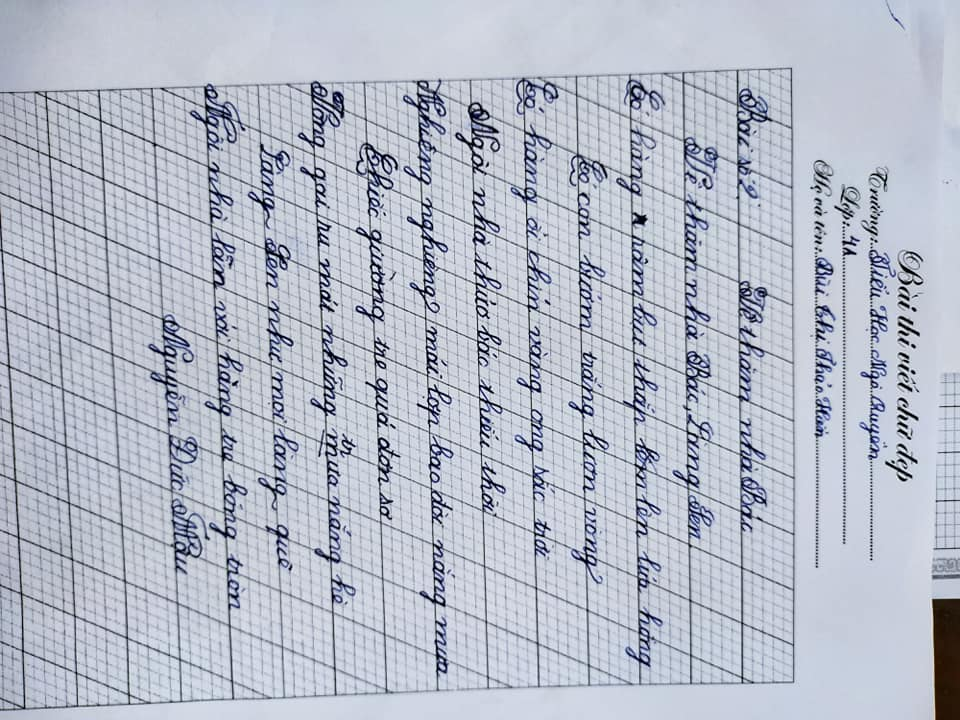 Bài thi viết chữ đẹp
Trường: Tiểu Học Ngô Quyền
Lớp: 4A
Họ và tên: Bùi Thị Thảo Hiền
Bài số 2: Về thăm nhà Bác
Về thăm nhà Bác, Làng Sen
Có hàng râm bụt thắp lên lửa hồng
Có con bướm trắng lượn vòng
Có hàng ổi chín vàng ong sắc trời
Ngôi nhà thuở bác thiếu thời
Nghiêng nghiêng mái lợp bao đời nắng mưa
Chiếc giường tre quá đơn sơ
Võng gai ru mát những trưa nắng hè
Làng Sen như mọi làng quê
Ngôi nhà lẫn với hàng tre bóng tròn
Nguyễn Đức Mậu